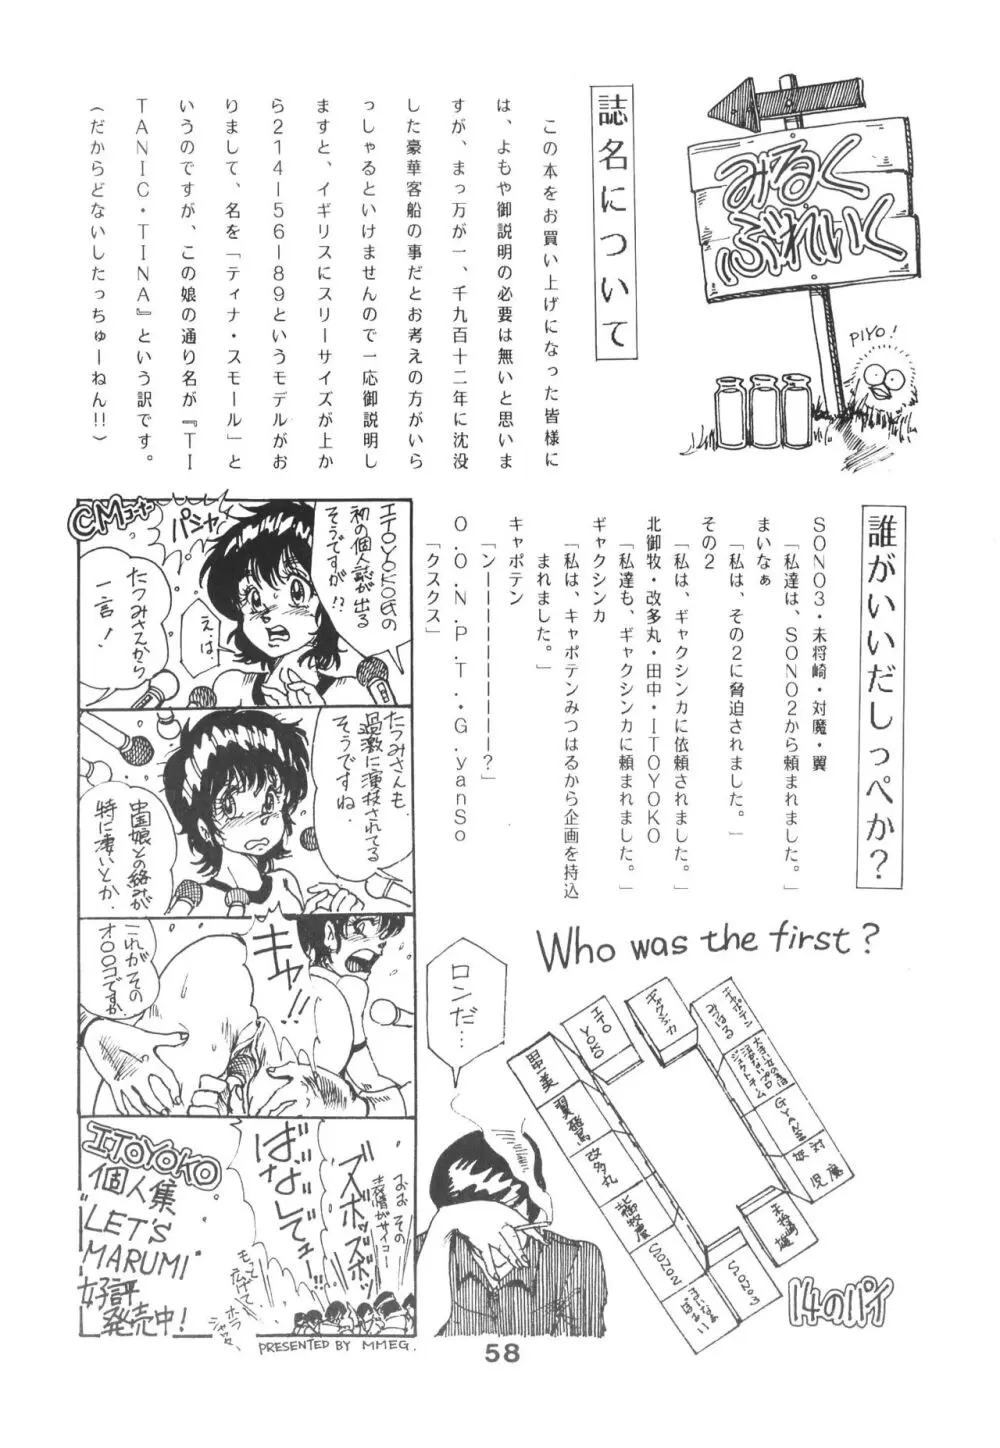 みるく
ぶれいく
PIYO!
誌名について
この本をお買い上げになった皆様に
は、よもや御説明の必要は無いと思いま
すが、まっ万が一、千九百十二年に沈没
した豪華客船の事だとお考えの方がいら
っしゃるといけませんので一応御説明し
ますと、イギリスにスリーサイズが上か
ら214―56―89というモデルがお
りまして、名を「ティナ・スモール」と
いうのですが、この娘の通り名が『TI
TANIC・TINA』という訳です。
(だからどないしたっちゅーねん!!)
誰がいいだしっぺか?
SONO3・未将崎・対魔・翼
「私達は、SONO2から頼まれました。」
まいなぁ
「私は、その2に脅迫されました。」
その2
「私は、ギャクシンカに依頼されました。」
北御牧・改多丸・田中・ITOYOKO
「私達も、ギャクシンカに頼まれました。」
ギャクシンカ
「私は、キャポテンみつはるから企画を持込
まれました。」
キャポテン
「ンーーーーーーーー?」
O.O.N.P.T.G.yanSo
「クスクス」
CMコーナー
パシャ
ITOYOKO氏の
初の個人誌が出る
そうですが!?
えは、
たつみさんから
一言!
たつみさんも
過激に演技されてる
そうですね.
中国娘との絡みが
特に凄いとか.
キャ!!
これがその
オ○○コですか
ばななでェ!!
ズボッズボッ
おお その
表情がサイコー
もっと
広げて、
ホラ
ITOYOKO
個人集
"LET'S
MARUMI"
好評
発売中!
PRESENTED BY MMEG.
ロンだ…
Who was the first?
キャポテン
みつはる
ギャクシンカ
ITO
YOKO
田中一美
改多丸
SONO2
SONO3
対
魔
14のパイ
58